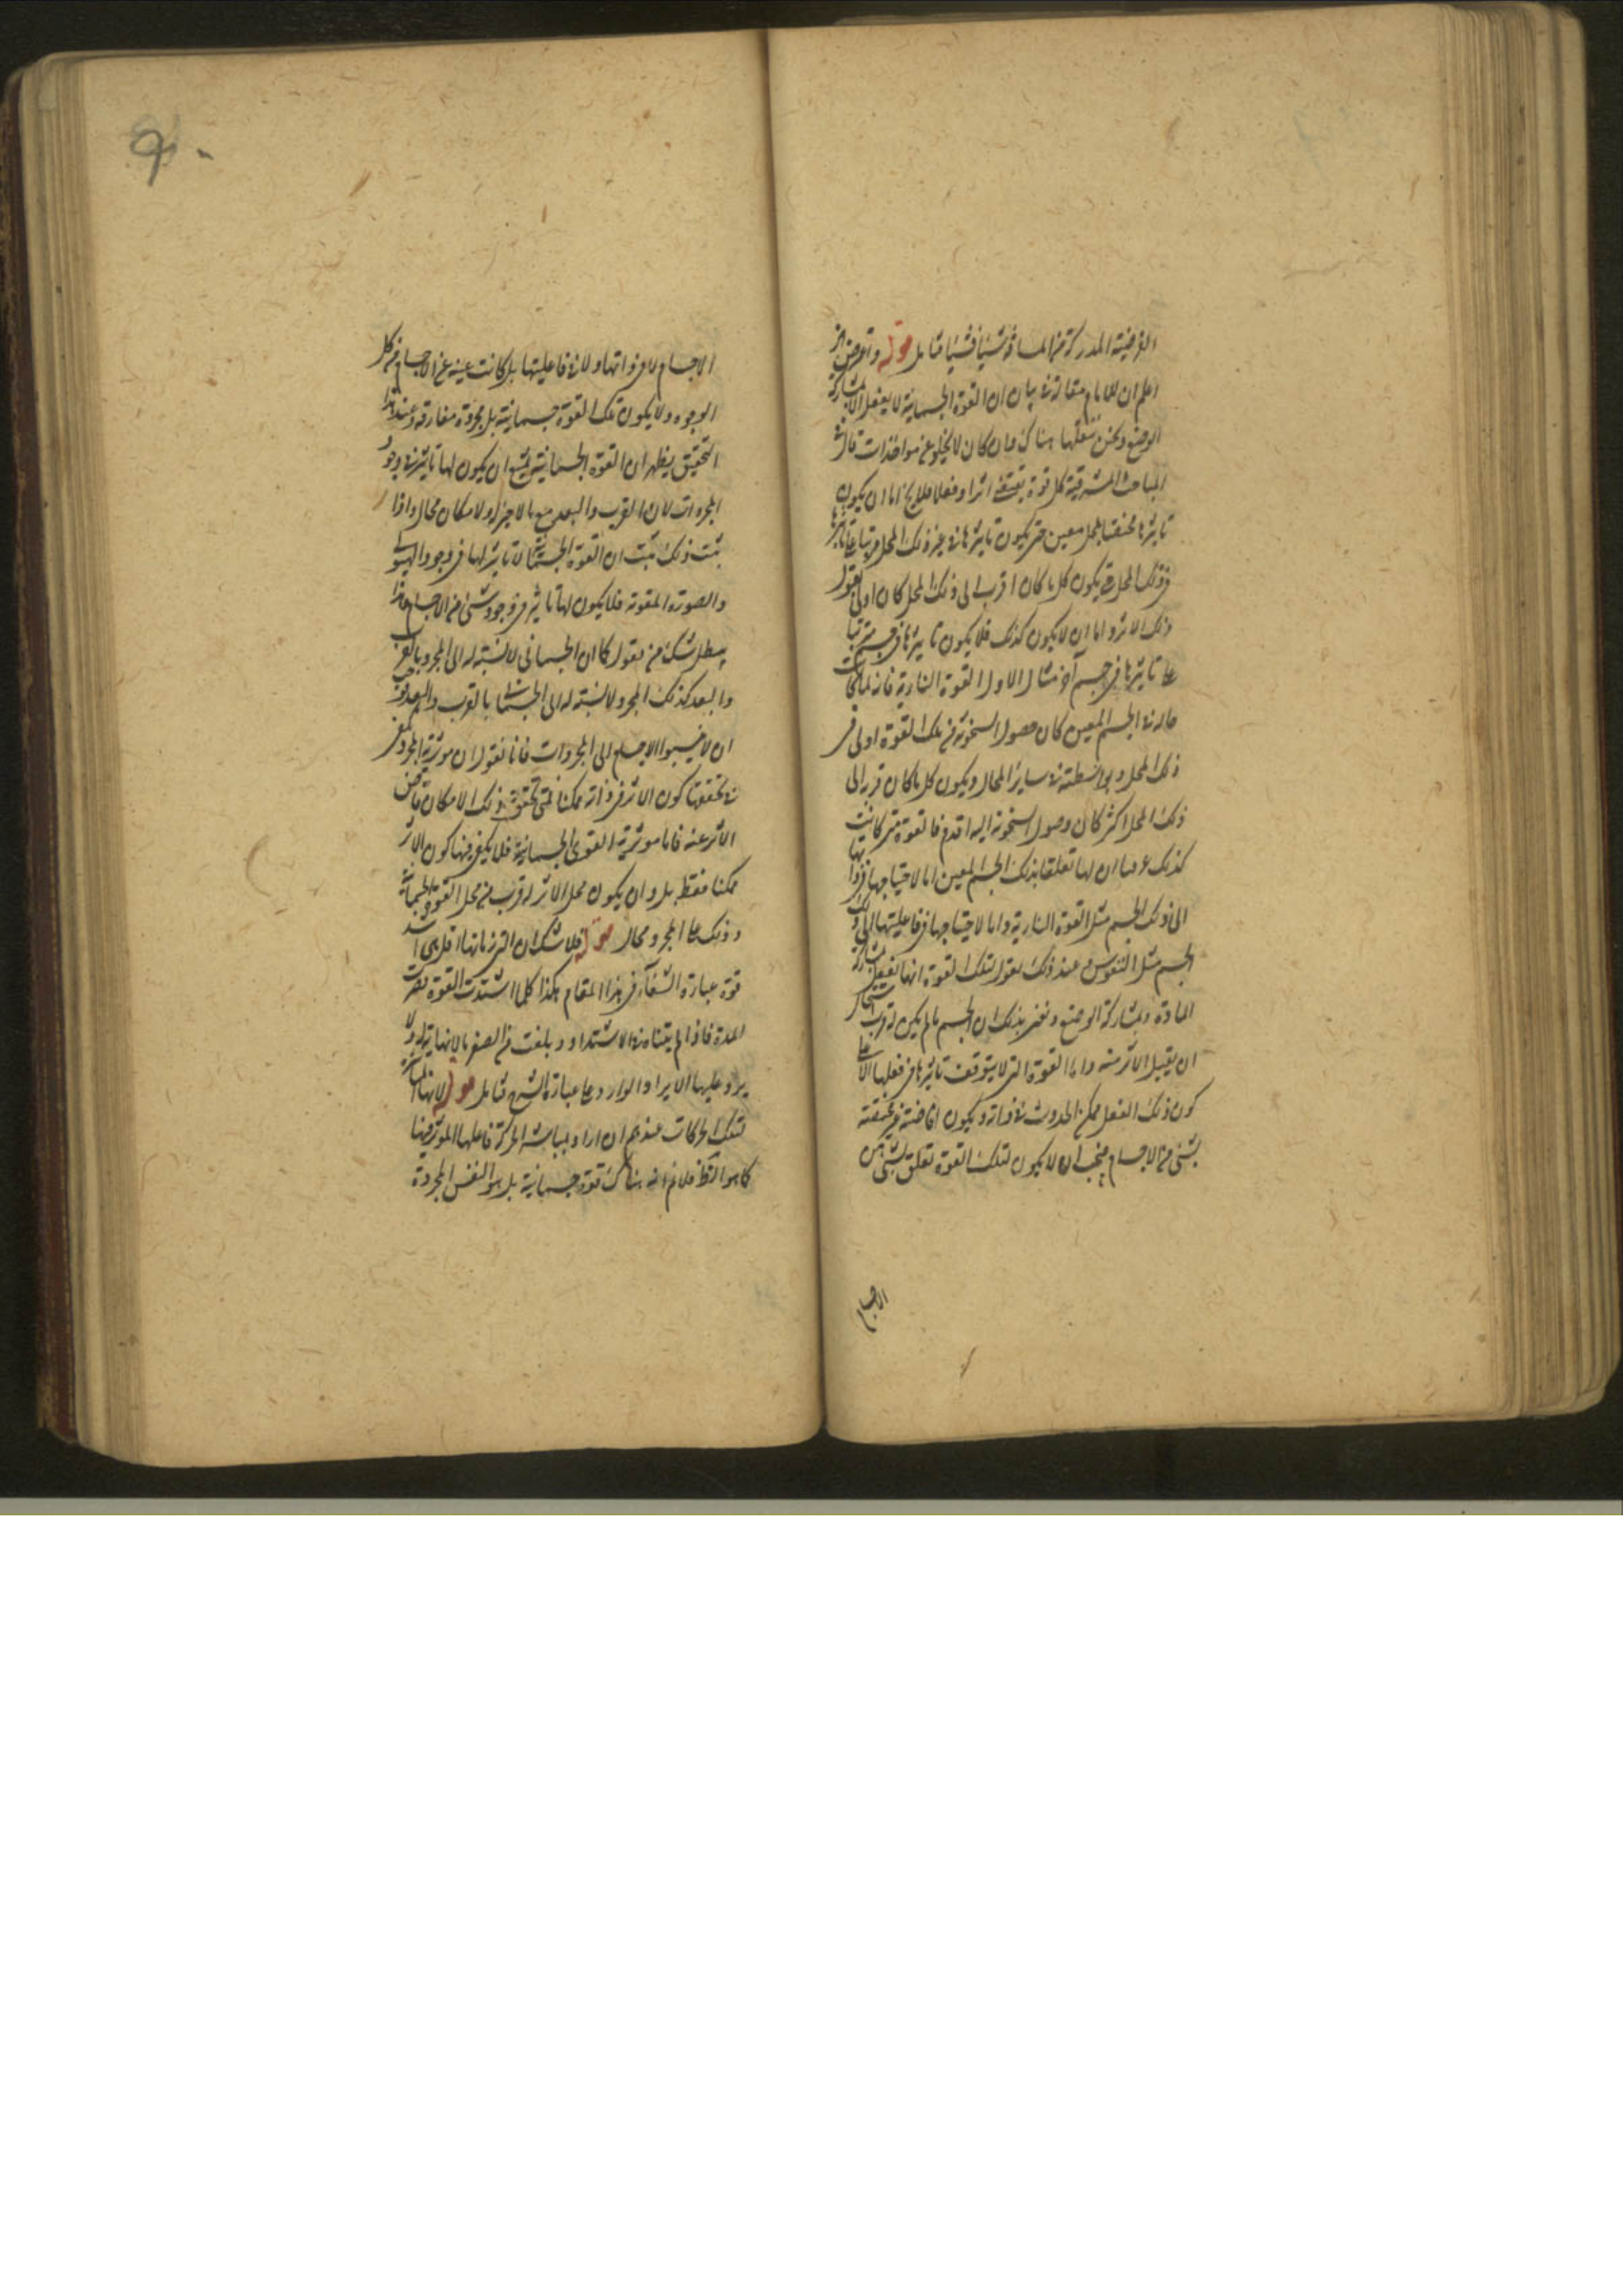 الفرضية المدركة من المسافة شيئا فشيئا تأمل قوله وتعرض
اعلم ان للامام مقالة في بيان ان القوة الجسمانية لا يفعل الا بمشاركة
الوضع ونحن ننقلها هناك وان كان لا يخلو عن مواخذات قال في
المباحث المشرقية كل قوة يقتضي اثرا وفعلا فلا يخ اما ان يكون
تاثيرها مختصا بمحل معين حتى يكون تاثيرها في غير ذلك المحل مرتبا على تاثيرها
في ذلك المحل حتى يكون كل ما كان اقرب الى ذلك المحل كان اولى بقبول
ذلك الاثر واما ان لا يكون كذلك فلا يكون تاثيرها في جسم مرتبا
على تاثيرها في جسم آخر مثال الاول القوة النارية فانه لما كانت
حالة في الجسم المعين كان حصول السخونة من تلك القوة اولى في
ذلك المحل وبواسطته في سائر المحال ويكون كل ما كان قربه الى
ذلك المحل اكثر كان وصول السخونة اليه اقدم فالقوة متى كانت
كذلك عرفنا ان لها تعلقا بذلك الجسم المعين اما لاحتياجها في ذاتها
الى ذلك الجسم مثل القوة النارية واما لاحتياجها في فاعليتها الى ذلك
الجسم مثل النفوس وعند ذلك نقول لتلك القوة انها تفعل بمشاركة
المادة وبمشاركة الوضع ونعني بذلك ان الجسم ما لم يكن له قرب
ان يقبل الاثر منه واما القوة التي لا يتوقف تاثيرها في فعلها الا على
كون ذلك الفعل ممكن الحدوث في ذاته ويكون افاضته غير مختصة
بشئ من الاجسام فيجب ان لا يكون لتلك القوة تعلق بشئ من
الاجسام
الاجسام لا في ذاتها ولا في فاعليتها بل كانت غنية عن الاجسام من كل
الوجوه ولا يكون تلك القوة جسمانية بل مجردة مفارقة وعند هذا
التحقيق يظهر ان القوة الجسمانية يمتنع ان يكون لها تاثير في وجود
المجردات لان القرب والبعد مع ما لا حيز له ولا مكان محال واذا
ثبت ذلك ثبت ان القوة الجسمانية لا تاثير لها في وجود الهيولى
والصورة المقومة فلا يكون لها تاثير في وجود شئ من الاجسام وبهذا
يبطل شك من يقول كما ان الجسماني لا نسبة له الى المجرد بالقرب
والبعد كذلك المجرد لا نسبة له الى الجسماني بالقرب والبعد
ان لا ينسبوا الاجسام الى المجردات فانا نقول ان موثرية المجرد يكفي
في تحققها كون الاثر في ذاته ممكنا فمتى تحقق ذلك الامكان فاض
الاثر عنه فاما موثرية القوى الجسمانية فلا يكفي فيها كون الاثر
ممكنا فقط بل وان يكون محل الاثر له قرب من محل القوة الجسمانية
وذلك على المجرد محال قوله فلا شك ان التي زمانها اقل هي اشد
قوة عبارة الشفآء في هذا المقام هكذا كلما اشتدت القوة قصرت
المدة فاذا لم يتناه في الاشتداد وبلغت من الصغر ما لا نهاية له ولا
يرد عليها الايراد الوارد على عبارة الشرح تأمل قوله لانها المباشرة
لتلك الحركات عندهم ان اراد بمباشر الحركة فاعلها الموثر فيها
كما هو الظ فلا نم انه هناك قوة جسمانية بل هو النفس المجردة